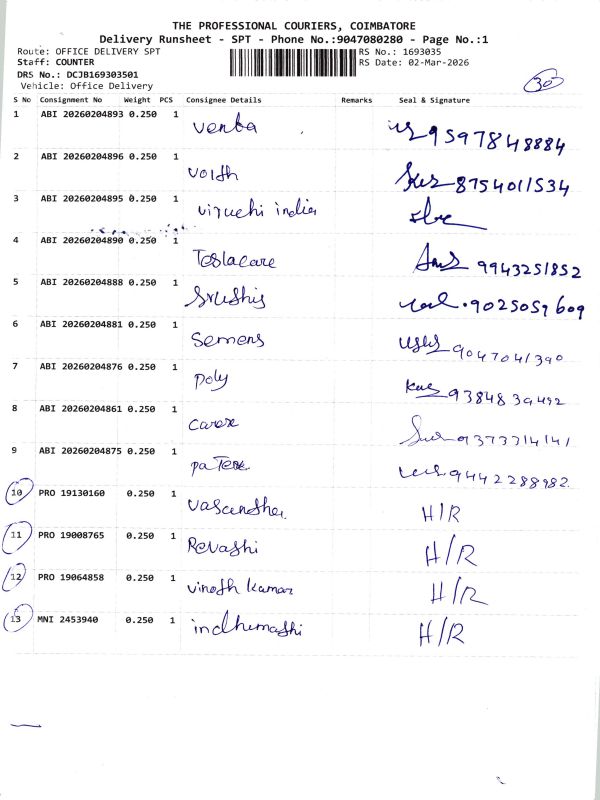 THE PROFESSIONAL COURIERS, COIMBATORE
Delivery Runsheet - SPT - Phone No.:9047080280 - Page No.:1
Route: OFFICE DELIVERY SPT RS No.: 1693035
Staff: COUNTER RS Date: 02-Mar-2026
DRS No.: DCJB169303501
Vehicle: Office Delivery
30
S No Consignment No Weight PCS Consignee Details Remarks Seal & Signature
1 ABI 20260204893 0.250 1 Venba 9597848884
2 ABI 20260204896 0.250 1 Voith 8754011534
3 ABI 20260204895 0.250 1 Viruchi india
4 ABI 20260204890 0.250 1 Teslacare 9943251852
5 ABI 20260204888 0.250 1 Srushis 9025059609
6 ABI 20260204881 0.250 1 Semens 9047041390
7 ABI 20260204876 0.250 1 Poly 9384839492
8 ABI 20260204861 0.250 1 9373314141
9 ABI 20260204875 0.250 1 9442288982
10 PRO 19130160 0.250 1 H/R
11 PRO 19008765 0.250 1 Revathi H/R
12 PRO 19064858 0.250 1 vinoth kumar H/R
13 MNI 2453940 0.250 1 indhumathi H/R